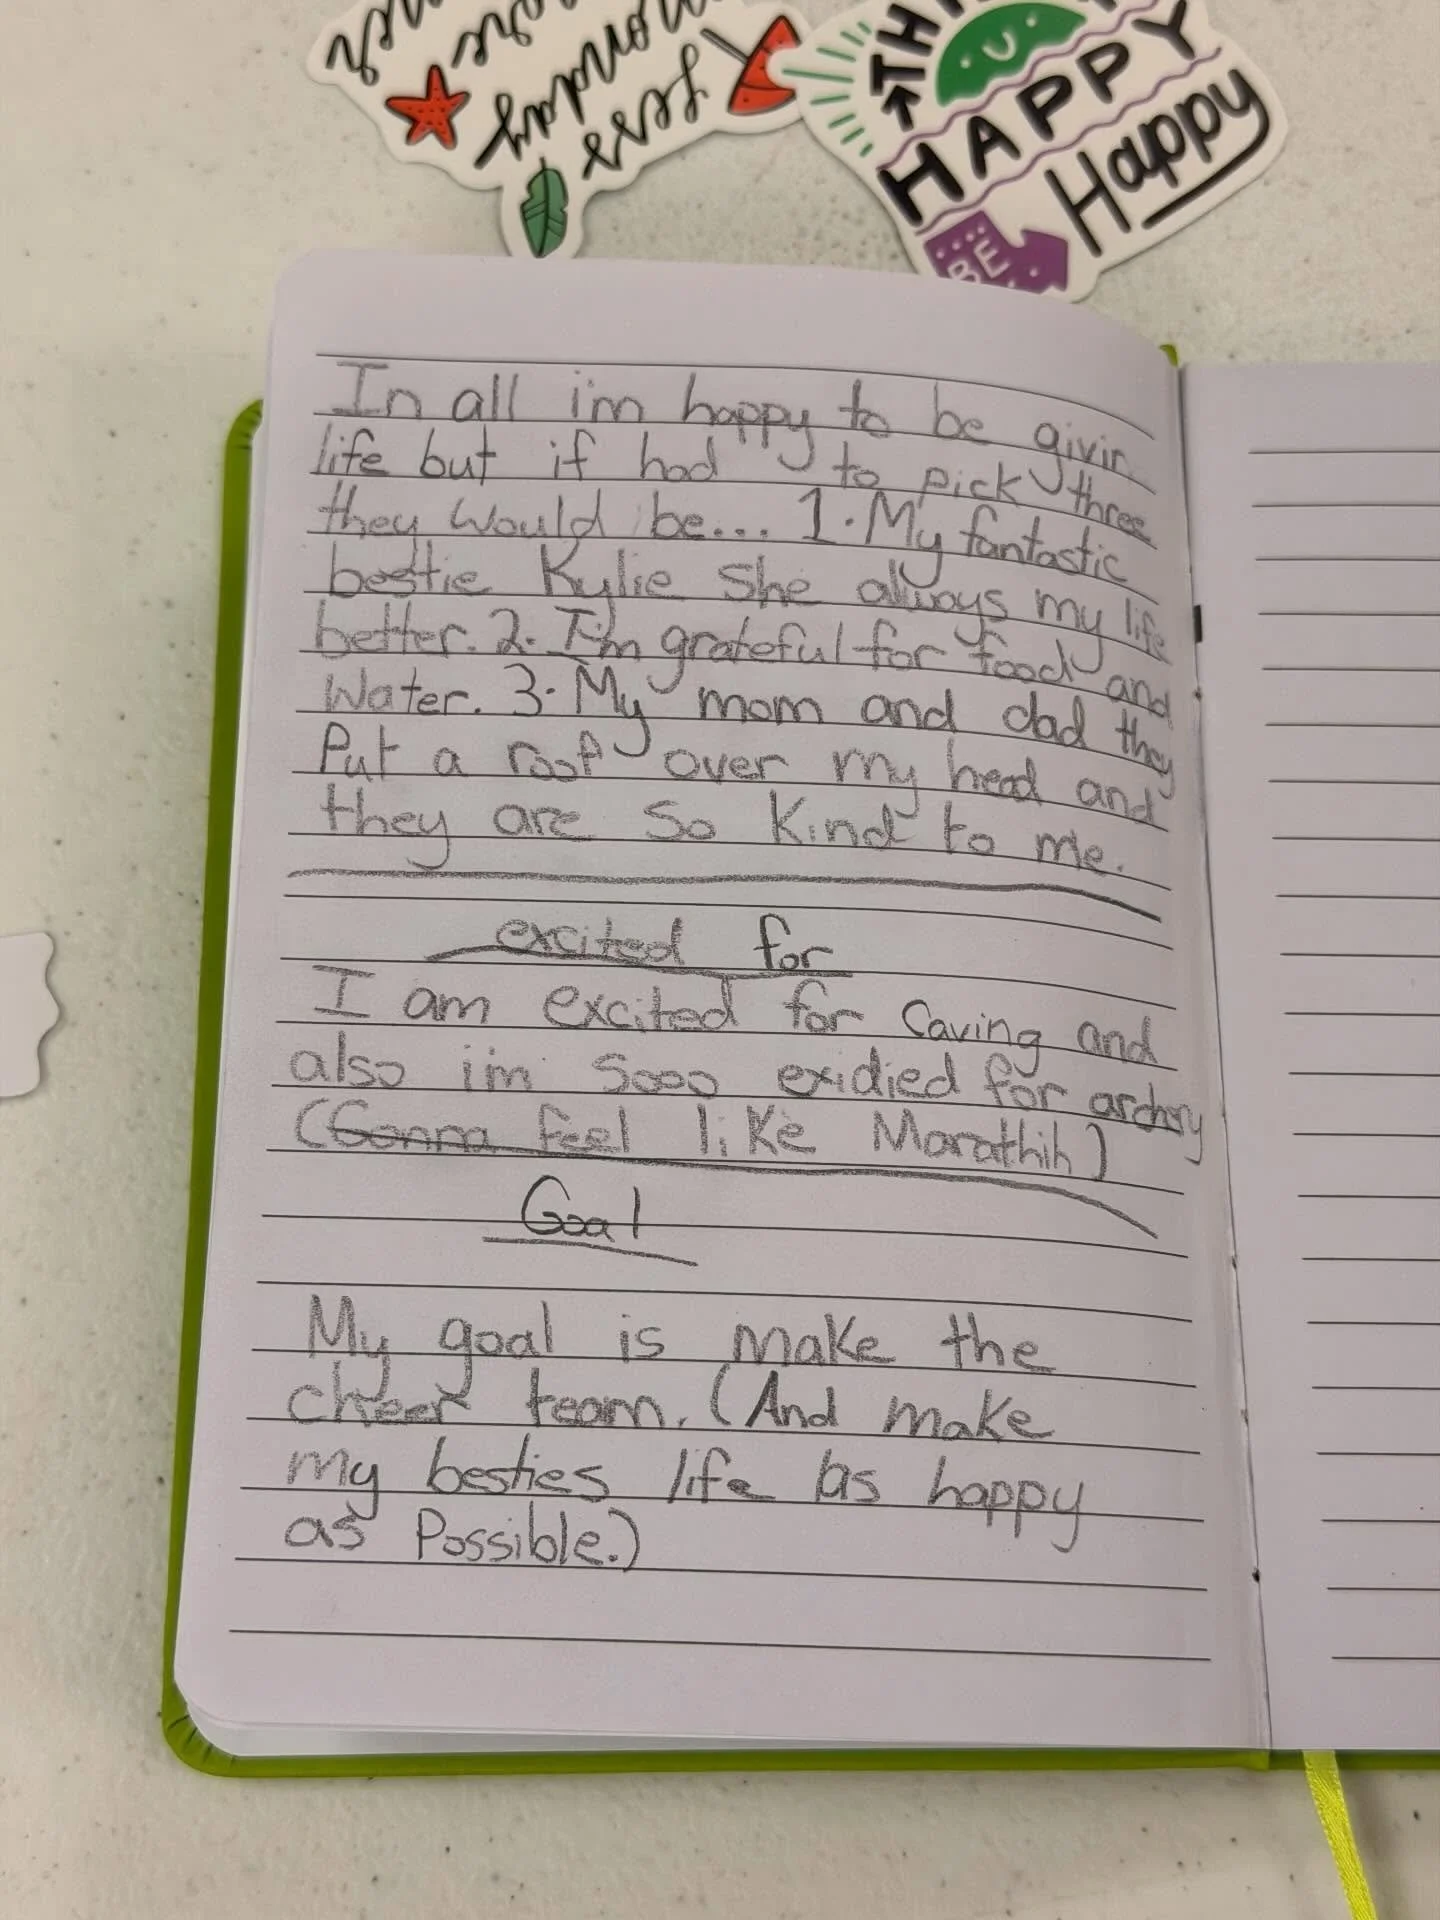 more
Monday
less
THINK
HAPPY
BE
Happy
In all i'm happy to be givin
life but if had to pick three
they would be... 1. My fantastic
bestie Kylie she always my life
better. 2. I'm grateful for food and
Water. 3. My mom and dad they
Put a roof over my head and
they are so kind to me.
excited for
I am excited for Caving and
also i'm sooo exidied for archery
(Gonna feel like Marathih)
Goal
My goal is make the
cheer team. (And make
my besties life as happy
as Possible.)